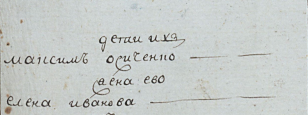 детаи иха
максимъ осиченко
жена ево
елена иванова